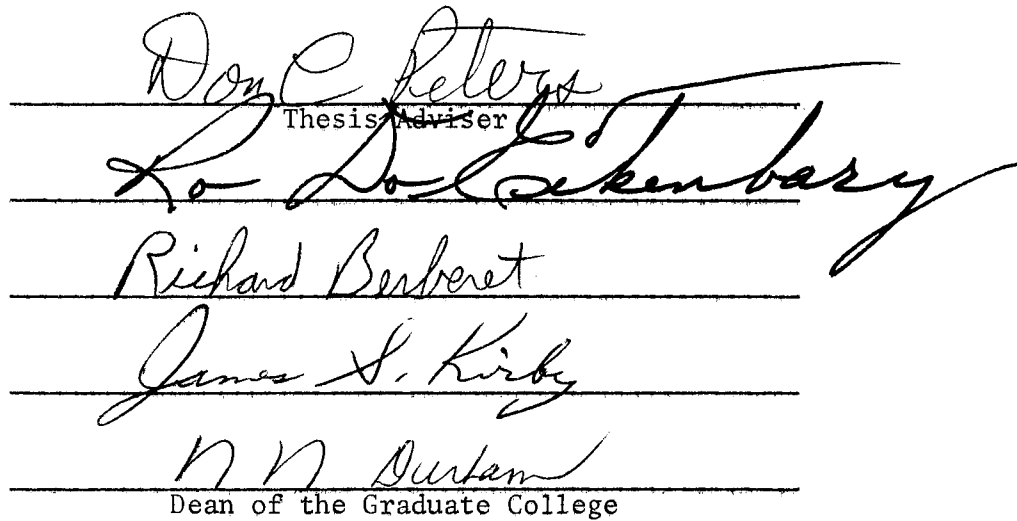 Don C Peters
Thesis Adviser
R. D. Eikenbary
Richard Berberet
James S. Kirby
N N Durham
Dean of the Graduate College